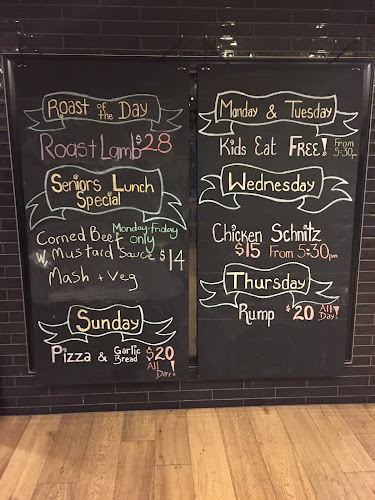 Roast of the Day
Roast Lamb $28
Seniors Lunch
Special
Monday-friday
Corned Beef only
w. Mustard Sauce $14
Mash + Veg
Sunday
Pizza & Garlic Bread $20
All Day!
Monday & Tuesday
Kids Eat FREE! From 5:30pm
Wednesday
Chicken Schnitz
$15 From 5:30pm
Thursday
Rump $20 All Day!